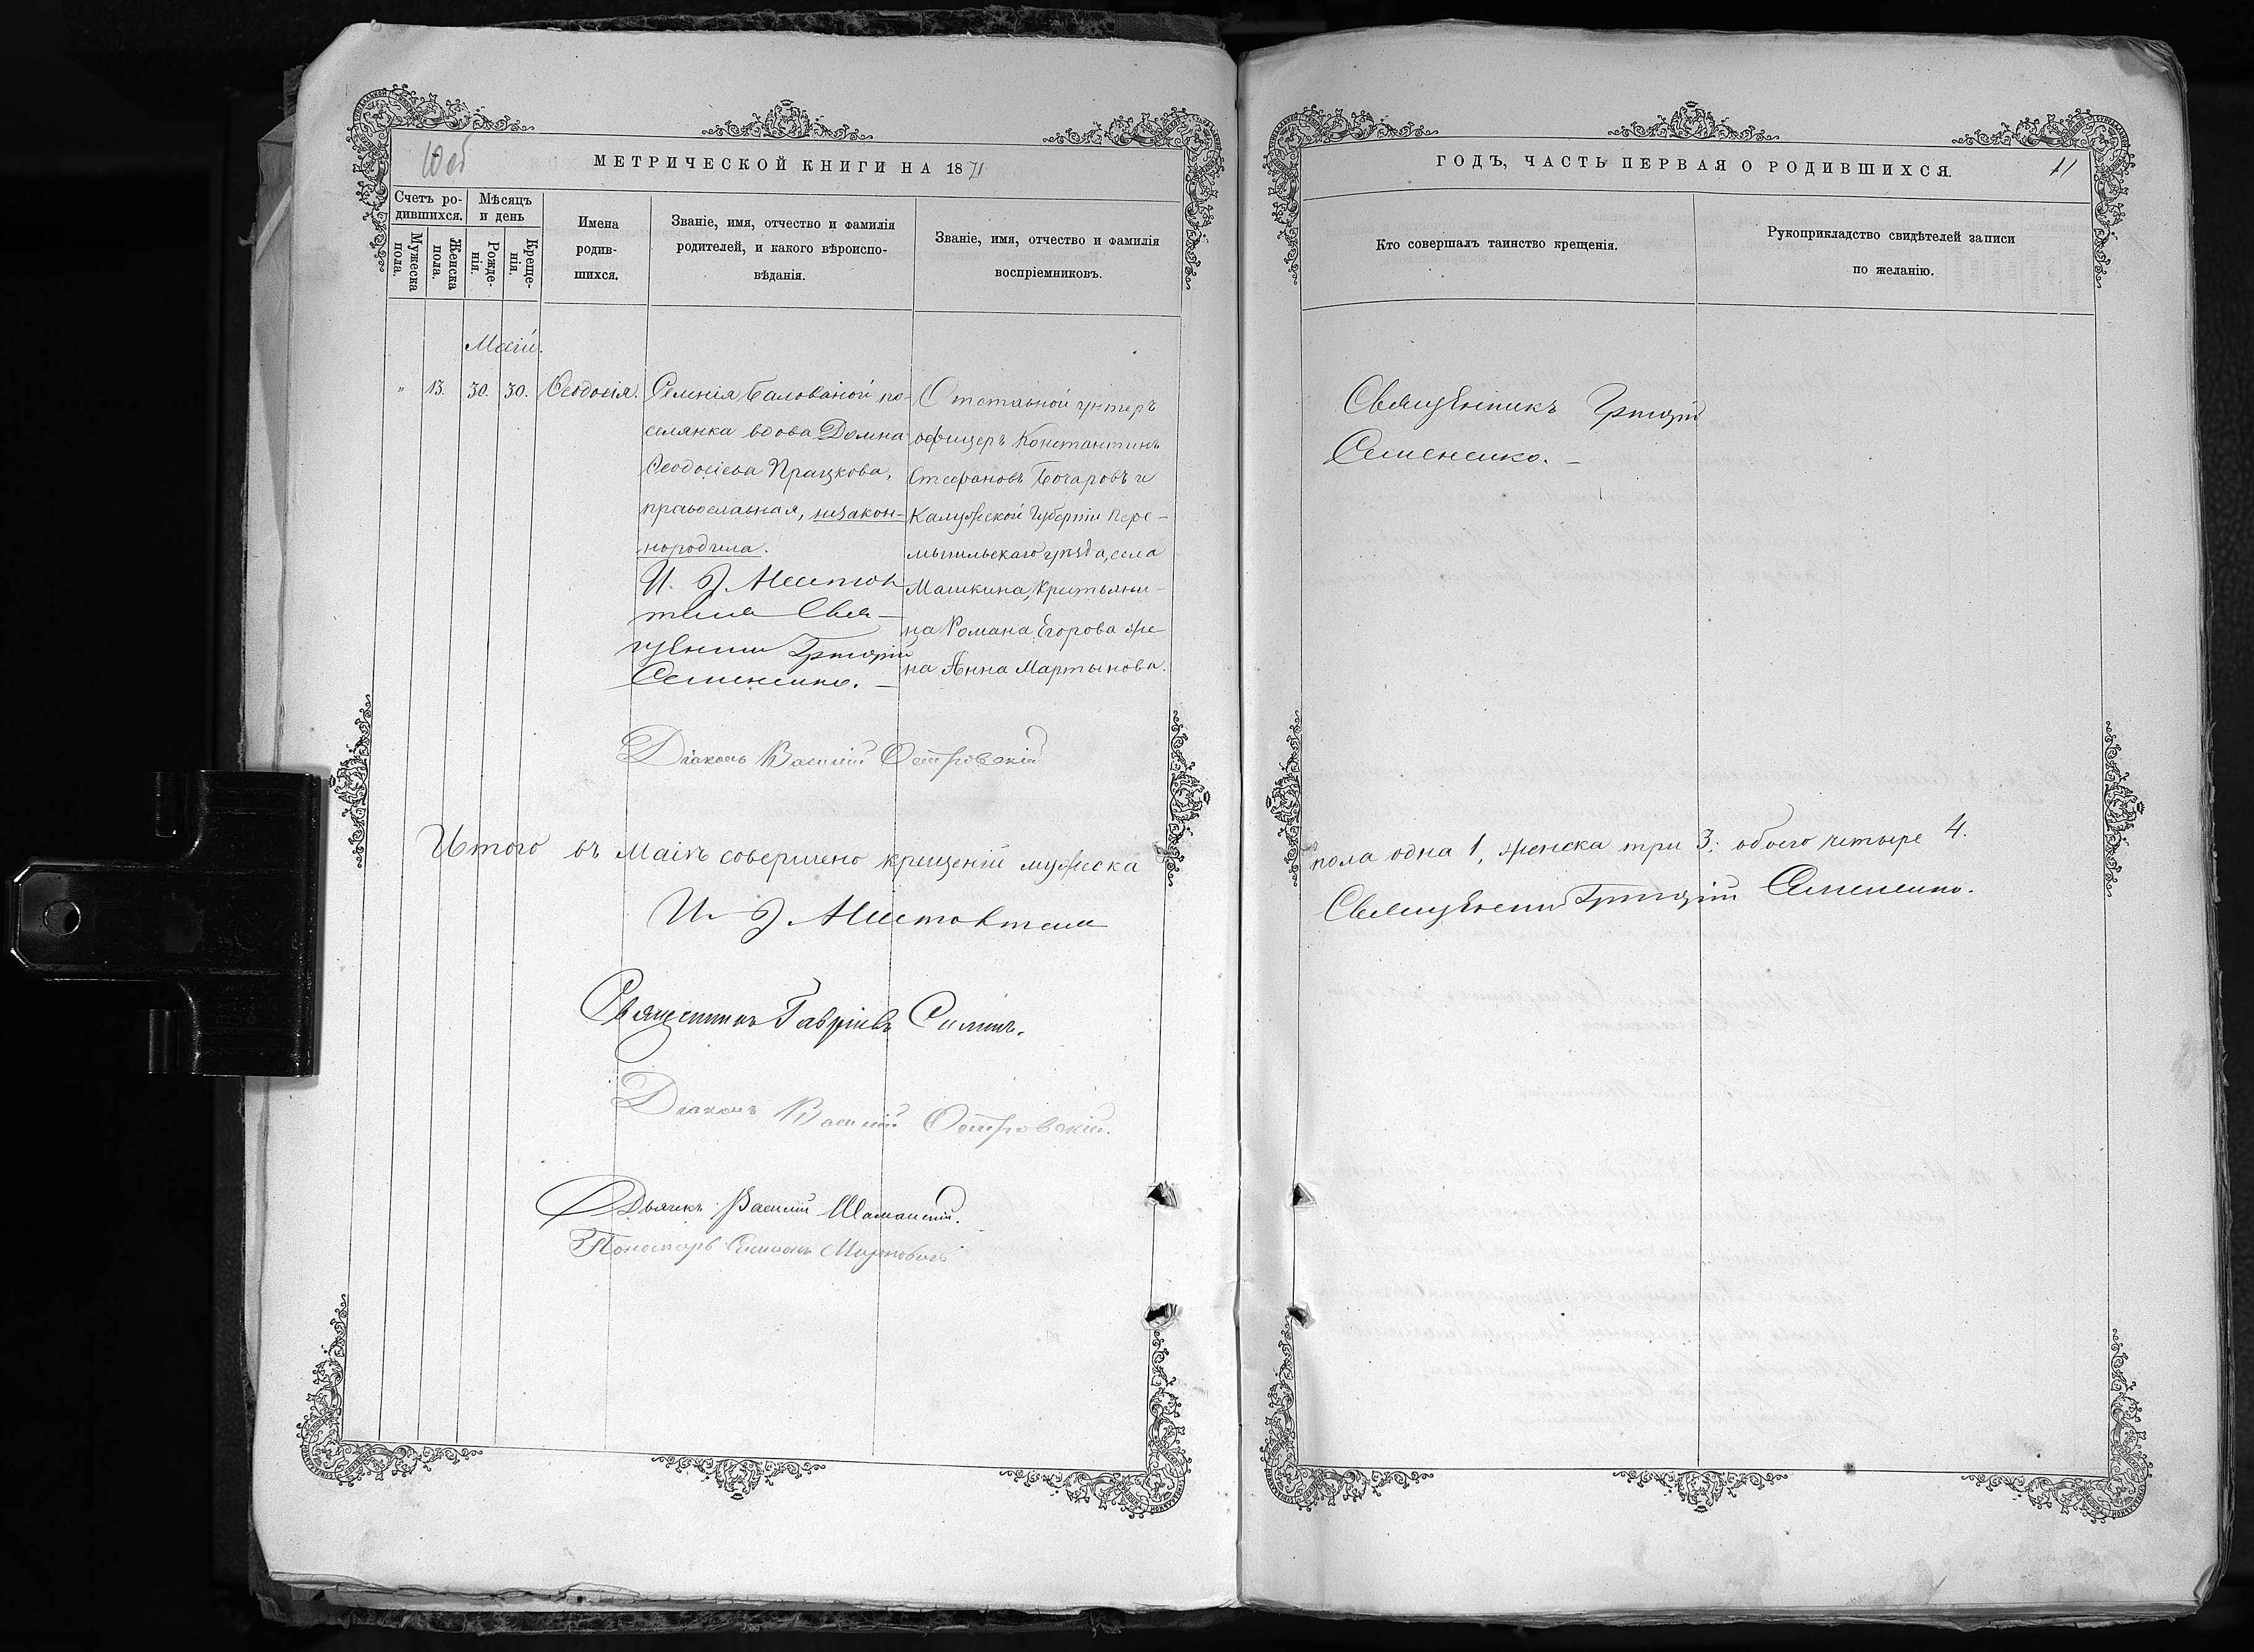 МЕТРИЧЕСКОЙ КНИГИ НА 1871
Счетъ ро-
дившихся.
Мѣсяцъ
и день
Мужеска
пола.
Женска
пола.
Рожде-
нія.
Креще-
нія.
Имена
родив-
шихся.
Званіе, имя, отчество и фамилія
родителей, и какого вѣроиспо-
вѣданія.
Званіе, имя, отчество и фамилія
воспріемниковъ.
Маій.
" 13. 30. 30. Ѳеодосія.
Селенія Балованой по-
селянка вдова Домна
Ѳеодосіева Працкова,
православная, незакон-
нородила.
И. Д. Настоя
теля Свя-
щенник Григорій
Семененко.
Отставной унтеръ
офицеръ Константинъ
Стефановъ Бочаровъ и
Калужской Губерніи Пере-
мышльскаго уѣзда, села
Машкина, Крестьяни-
на Романа Егорова же-
на Анна Мартынова.
Діаконъ Василій Островскій
Итого въ Маіѣ совершено крещеній мужеска
И. Д. Настоятеля
Священникъ Гавріилъ
Діаконъ Василій Островскій.
Дьячекъ Василій Шаманскій.
Пономарь Симеонъ
ГОДЪ, ЧАСТЬ ПЕРВАЯ О РОДИВШИХСЯ.
11
Кто совершалъ таинство крещенія.
Рукоприкладство свидѣтелей записи
по желанію.
Священникъ Григорій
Семененко.
пола одна 1, женска три 3; обоего четыре 4.
Священник Григорій Семененко.